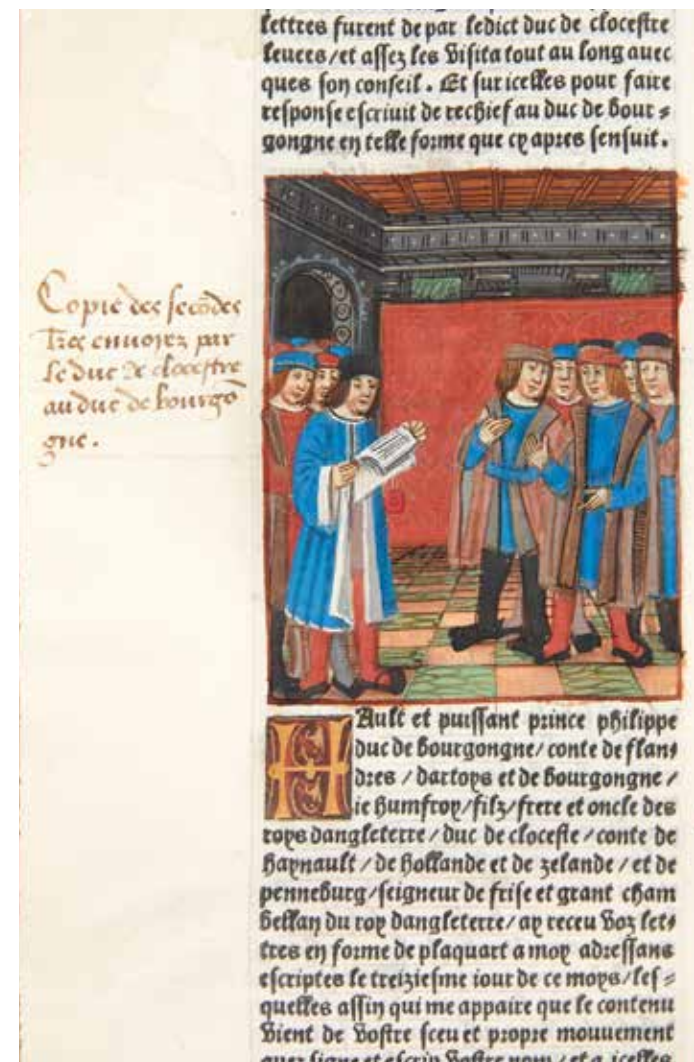 lettres furent de par ledict duc de clocestre
leuees/et assez les visita tout au long auec
ques son conseil. Et sur icelles pour faire
response escriuit de rechief au duc de bour⸗
gongne en telle forme que cy apres sensuit.
Copie des secōdes
lr̄es enuoiez par
le duc de clocestre
au duc de bourgō
gne.
HAult et puissant prince philippe
duc de bourgongne/conte de flan⸗
dres/dartoys et de bourgongne/
ie humfroy/filz/frere et oncle des
roys dangleterre/duc de cloceste/conte de
haynault/de hollande et de zelande/et de
penneburg/seigneur de frise et grant cham
bellan du roy dangleterre/ay receu voz let⸗
tres en forme de plaquart a moy adressans
escriptes le treiziesme iour de ce moys/les⸗
quelles affin qui me appaire que le contenu
vient de vostre sceu et propre mouuement
auez signe et escrip vostre nom/et icelles